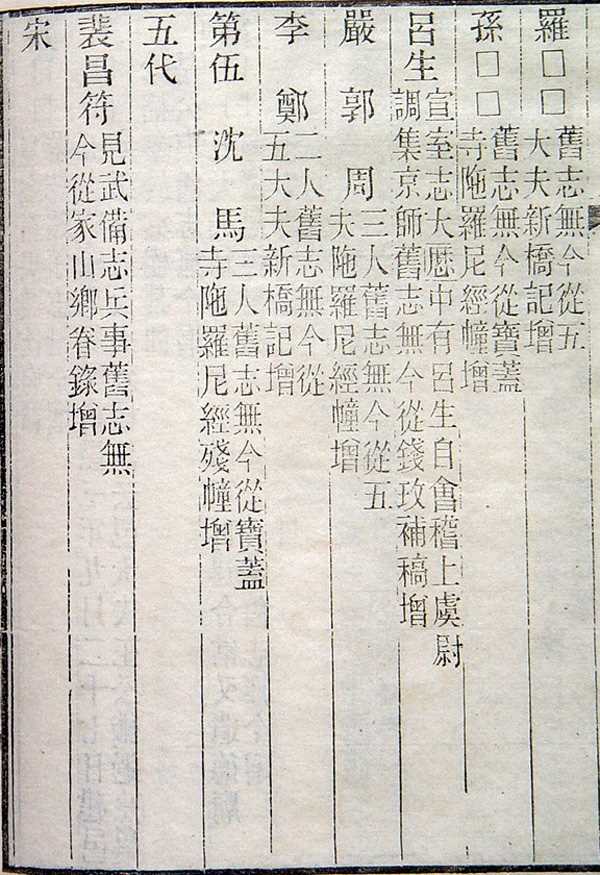 羅□□舊志無今從五
大夫新橋記增
孫□□舊志無今從寶蓋
寺陁羅尼經幢增
呂生宣室志大歷中有呂生自會稽上虞尉
調集京師舊志無今從錢玫補稿增
嚴 郭 周三人舊志無今從五
夫陁羅尼經幢增
李 鄭二人舊志無今從
五大夫新橋記增
第伍 沈 馬三人舊志無今從寶蓋
寺陁羅尼經殘幢增
五代
裴昌符見武備志兵事舊志無
今從家山鄉眷錄增
宋